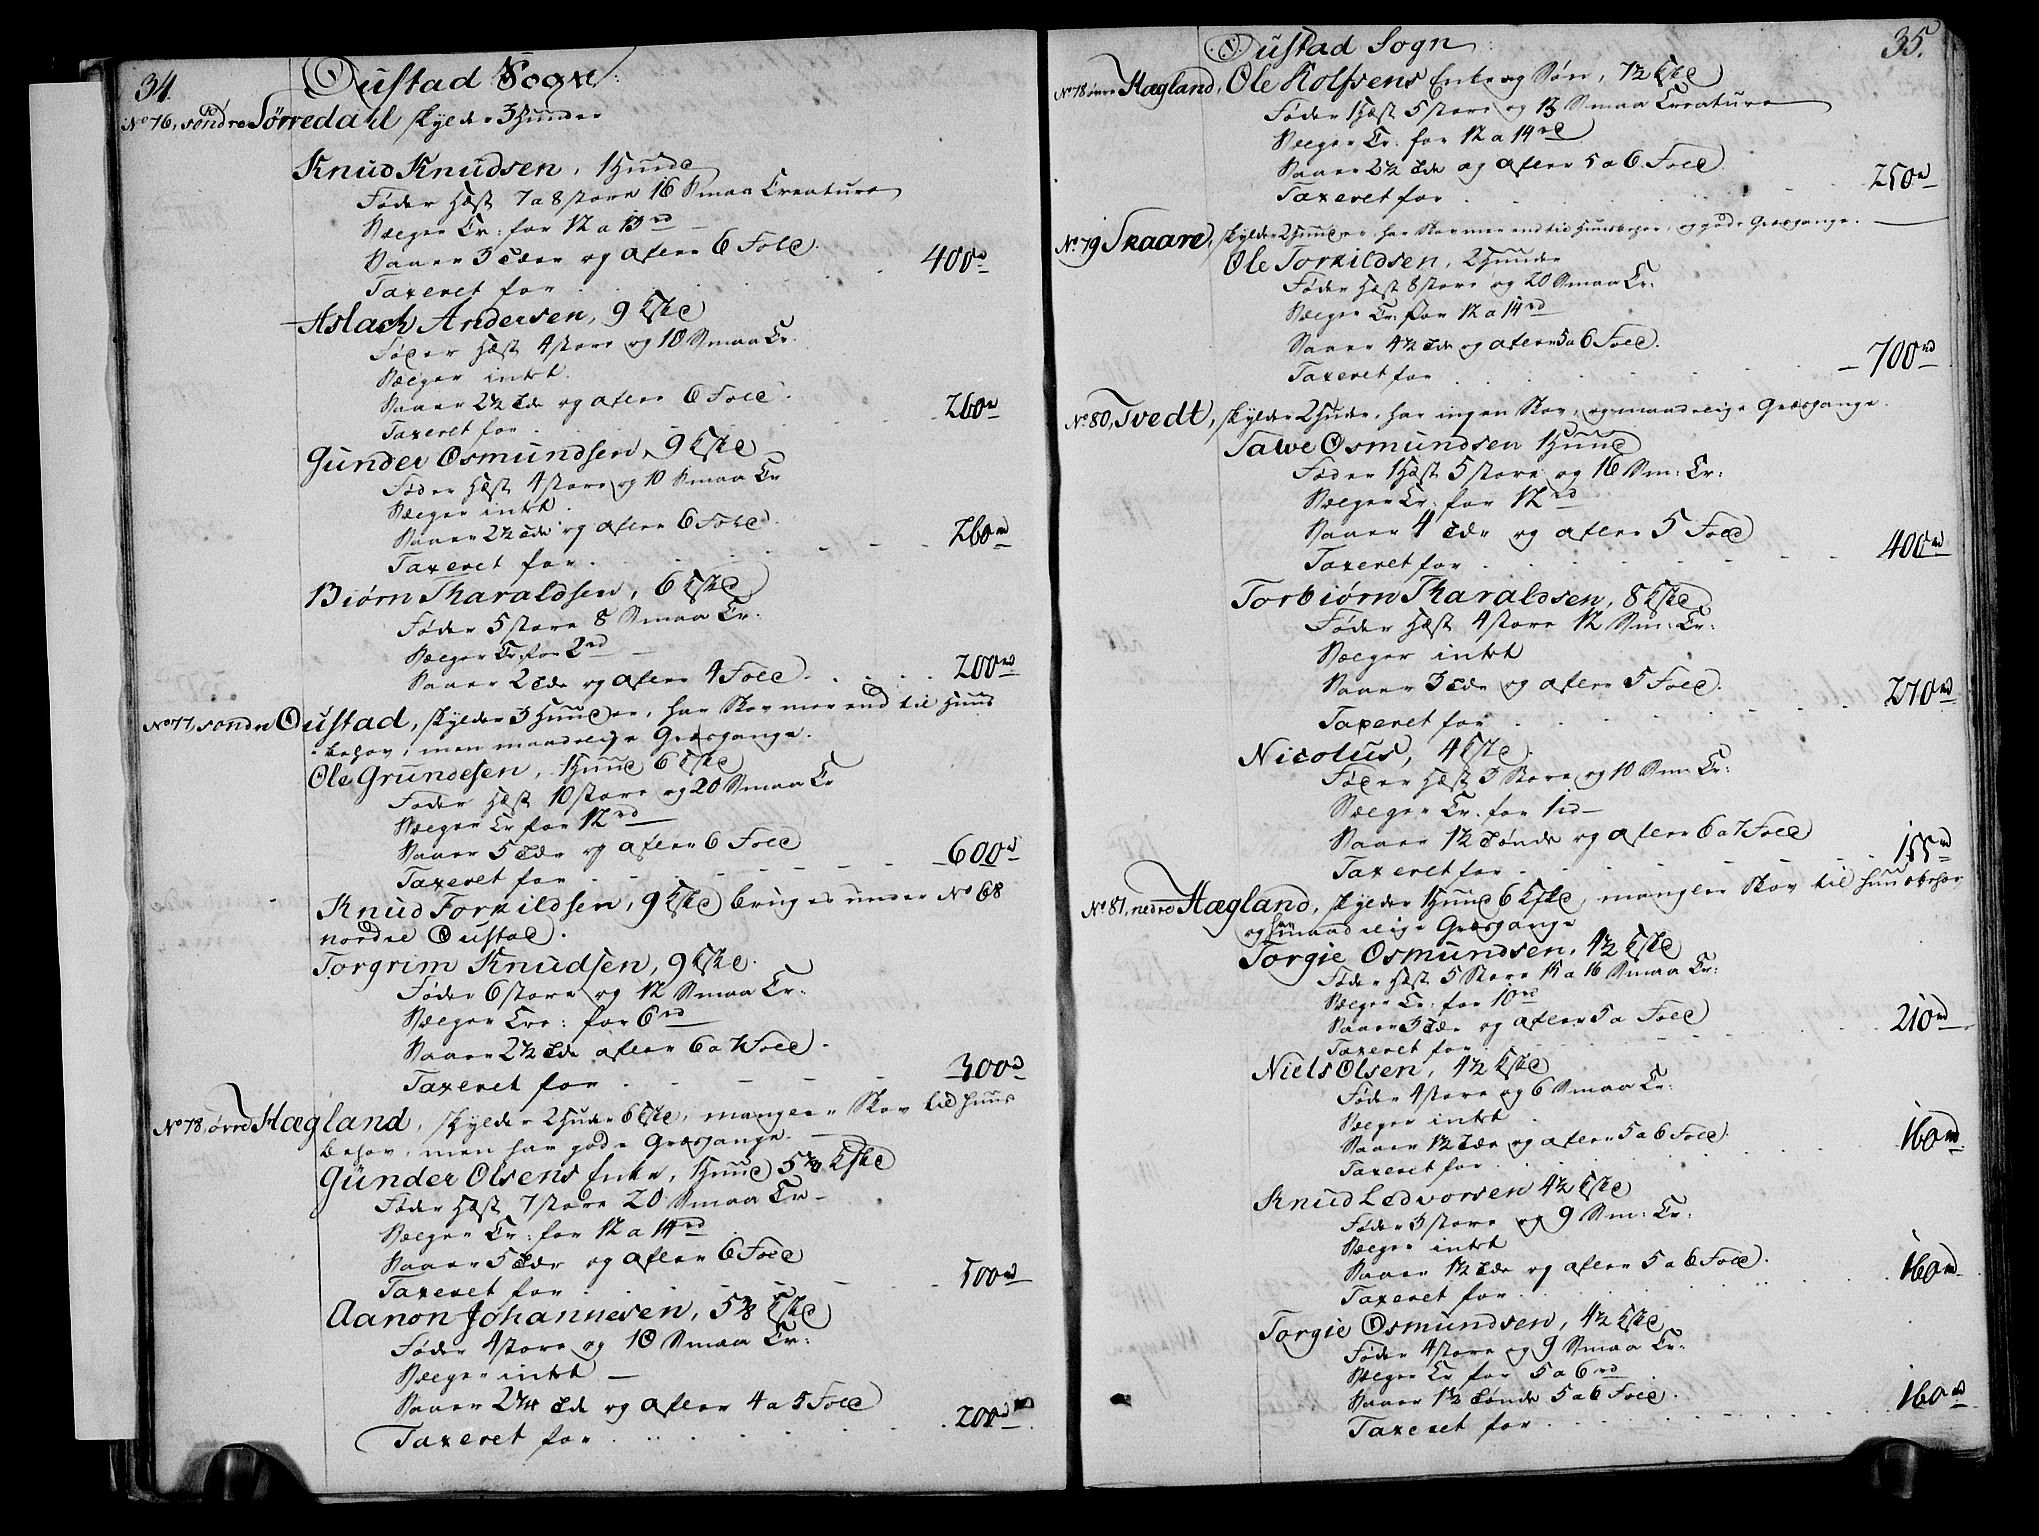 34.
Øustad Sogn
No 76, søndre Tørredahl skylder 3 Huuder
Knud Knudsen, 1 Huud
Føder Hæst 7 a 8 store 16 Smaa Creature
Sælger Cr: for 12 a 13 rd
Saaer 3 Tdr og afler 6 Fold.
Taxeret for . . . 400 rd
Aslach Andersen, 9 Eske
Føder Hæst 4 store og 10 Smaa Cr.
Sælger intet.
Saaer 2½ Tdr og afler 6 Fold.
Taxeret for . . . 260 rd
Gunder Osmundsen, 9 Eske
Føder Hæst 4 store og 10 Smaa Cr
Sælger intet.
Saaer 2½ Tdr og afler 6 Fold.
Taxeret for . . . 260 rd
Biørn Tharaldsen, 6 Eske
Føder 5 store 8 Smaa Cr:
Sælger Cr: for 2 rd
Saaer 2 Tdr og afler 4 Fold . . . 200 rd
No 77, søndre Øustad, skylder 3 Huuder, har Skov mer end til Huus
behov, men maadelige Græsgange.
Ole Grundesen, 1 Huud 6 Eske
Føder Hæst 10 store og 20 Smaa Cr
Sælger Cr for 12 rd
Saaer 5 Tdr og afler 6 Fold
Taxeret for . . . 600 rd
Knud Torkildsen, 9 Eske bruges under No 68
nordre Øustad.
Torgrim Knudsen, 9 Eske.
Føder 6 store og 12 Smaa Cr:
Sælger Cre: for 6 rd
Saaer 2½ Tdr afler 6 a 7 Fold.
Taxeret for . . . 300 rd
No 78, øvre Hægland, skylder 2 Huder 6 Eske, mangler Skov til Huus
behov, men har gode Græsgange.
Gunder Olsens Enke, 1 Huud Eske
Føder Hæst 7 store 20 Smaa Cr
Sælger Cr: for 12 a 14 rd
Saaer 5 Tdr og afler 6 Fold
Taxeret for . . . 500 rd
Aanon Johannesen, Eske
Føder 4 store og 10 Smaa Cr:
Sælger intet
Saaer 2¼ Td og afler 4 a 5 Fold
Taxeret for . . . 200 rd
35.
Øustad Sogn
No 78 øvre Hægland, Ole Rolfsens Enke og Søn, 7½ Eske
Føder 1 Hæst 5 store og 13 Smaa Creature
Sælger Cr: for 12 a 14 rd
Saaer 2½ Tdr og afler 5 a 6 Fold.
Taxeret for . . . 250 rd
No 79 Skaare, skylder 2 Huuder, har Skov mer end til Huusbehov, og gode Græsgange.
Ole Torkildsen, 2 Huuder
Føder Hæst 8 store og 20 Smaa Cr:
Sælger Cr: for 12 a 14 rd
Saaer 4½ Tdr og afler 5 a 6 Fold.
Taxeret for . . . 700 rd
No 80, Tvedt, skylder 2 Huder, har ingen Skov, og maadelige Græsgange.
Talve Osmundsen 1 Huud
Føder 1 Hæst 5 store og 16 Sm: Cr:
Sælger Cr: for 12 rd
Saaer 4 Tdr og afler 5 Fold
Taxeret for . . . 400 rd
Torbiørn Tharaldsen, 8 Eske
Føder Hæst 4 store 12 Sm: Cr:
Sælger intet
Saaer 3 Tdr og afler 5 Fold.
Taxeret for . . . 270 rd
Nicolus, 4 Eske
Føder Hæst 3 Store og 10 Sm: Cr:
Sælger Cr. for 1 rd
Saaer 1½ Tønde og afler 6 a 7 Fold
Taxeret for . . . 155 rd
No 81, nedre Hægland, skylder 1 Huud 6 Eske, mangler Skov til Huusbehov
og har maadelige Græsgange
Torgie Osmundsen, 4½ Eske
Føder Hæst 5 Store 15 a 16 Smaa Cr:
Sælger Cr: for 10 rd
Saaer 3 Tdr og afler 5 a Fold
Taxeret for . . . 210 rd
Niels Olsen, 4½ Eske
Føder 4 store og 6 Smaa Cr:
Sælger intet
Saaer 1½ Tdr og afler 5 a 6 Fold.
Taxeret for . . . 160 rd
Knud Ledvorsen 4½ Eske
Føder 3 store og 9 Sm: Cr:
Sælger intet
Saaer 1½ Tdr og afler 5 a 6 Fold.
Taxeret for . . . 160 rd
Torgie Osmundsen, 4½ Eske
Føder 4 store og 9 Smaa Cr:
Sælger Cr for 5 a 6 rd
Saaer 1½ Tønde 5 a 6 Fold.
Taxeret for . . . 160 rd